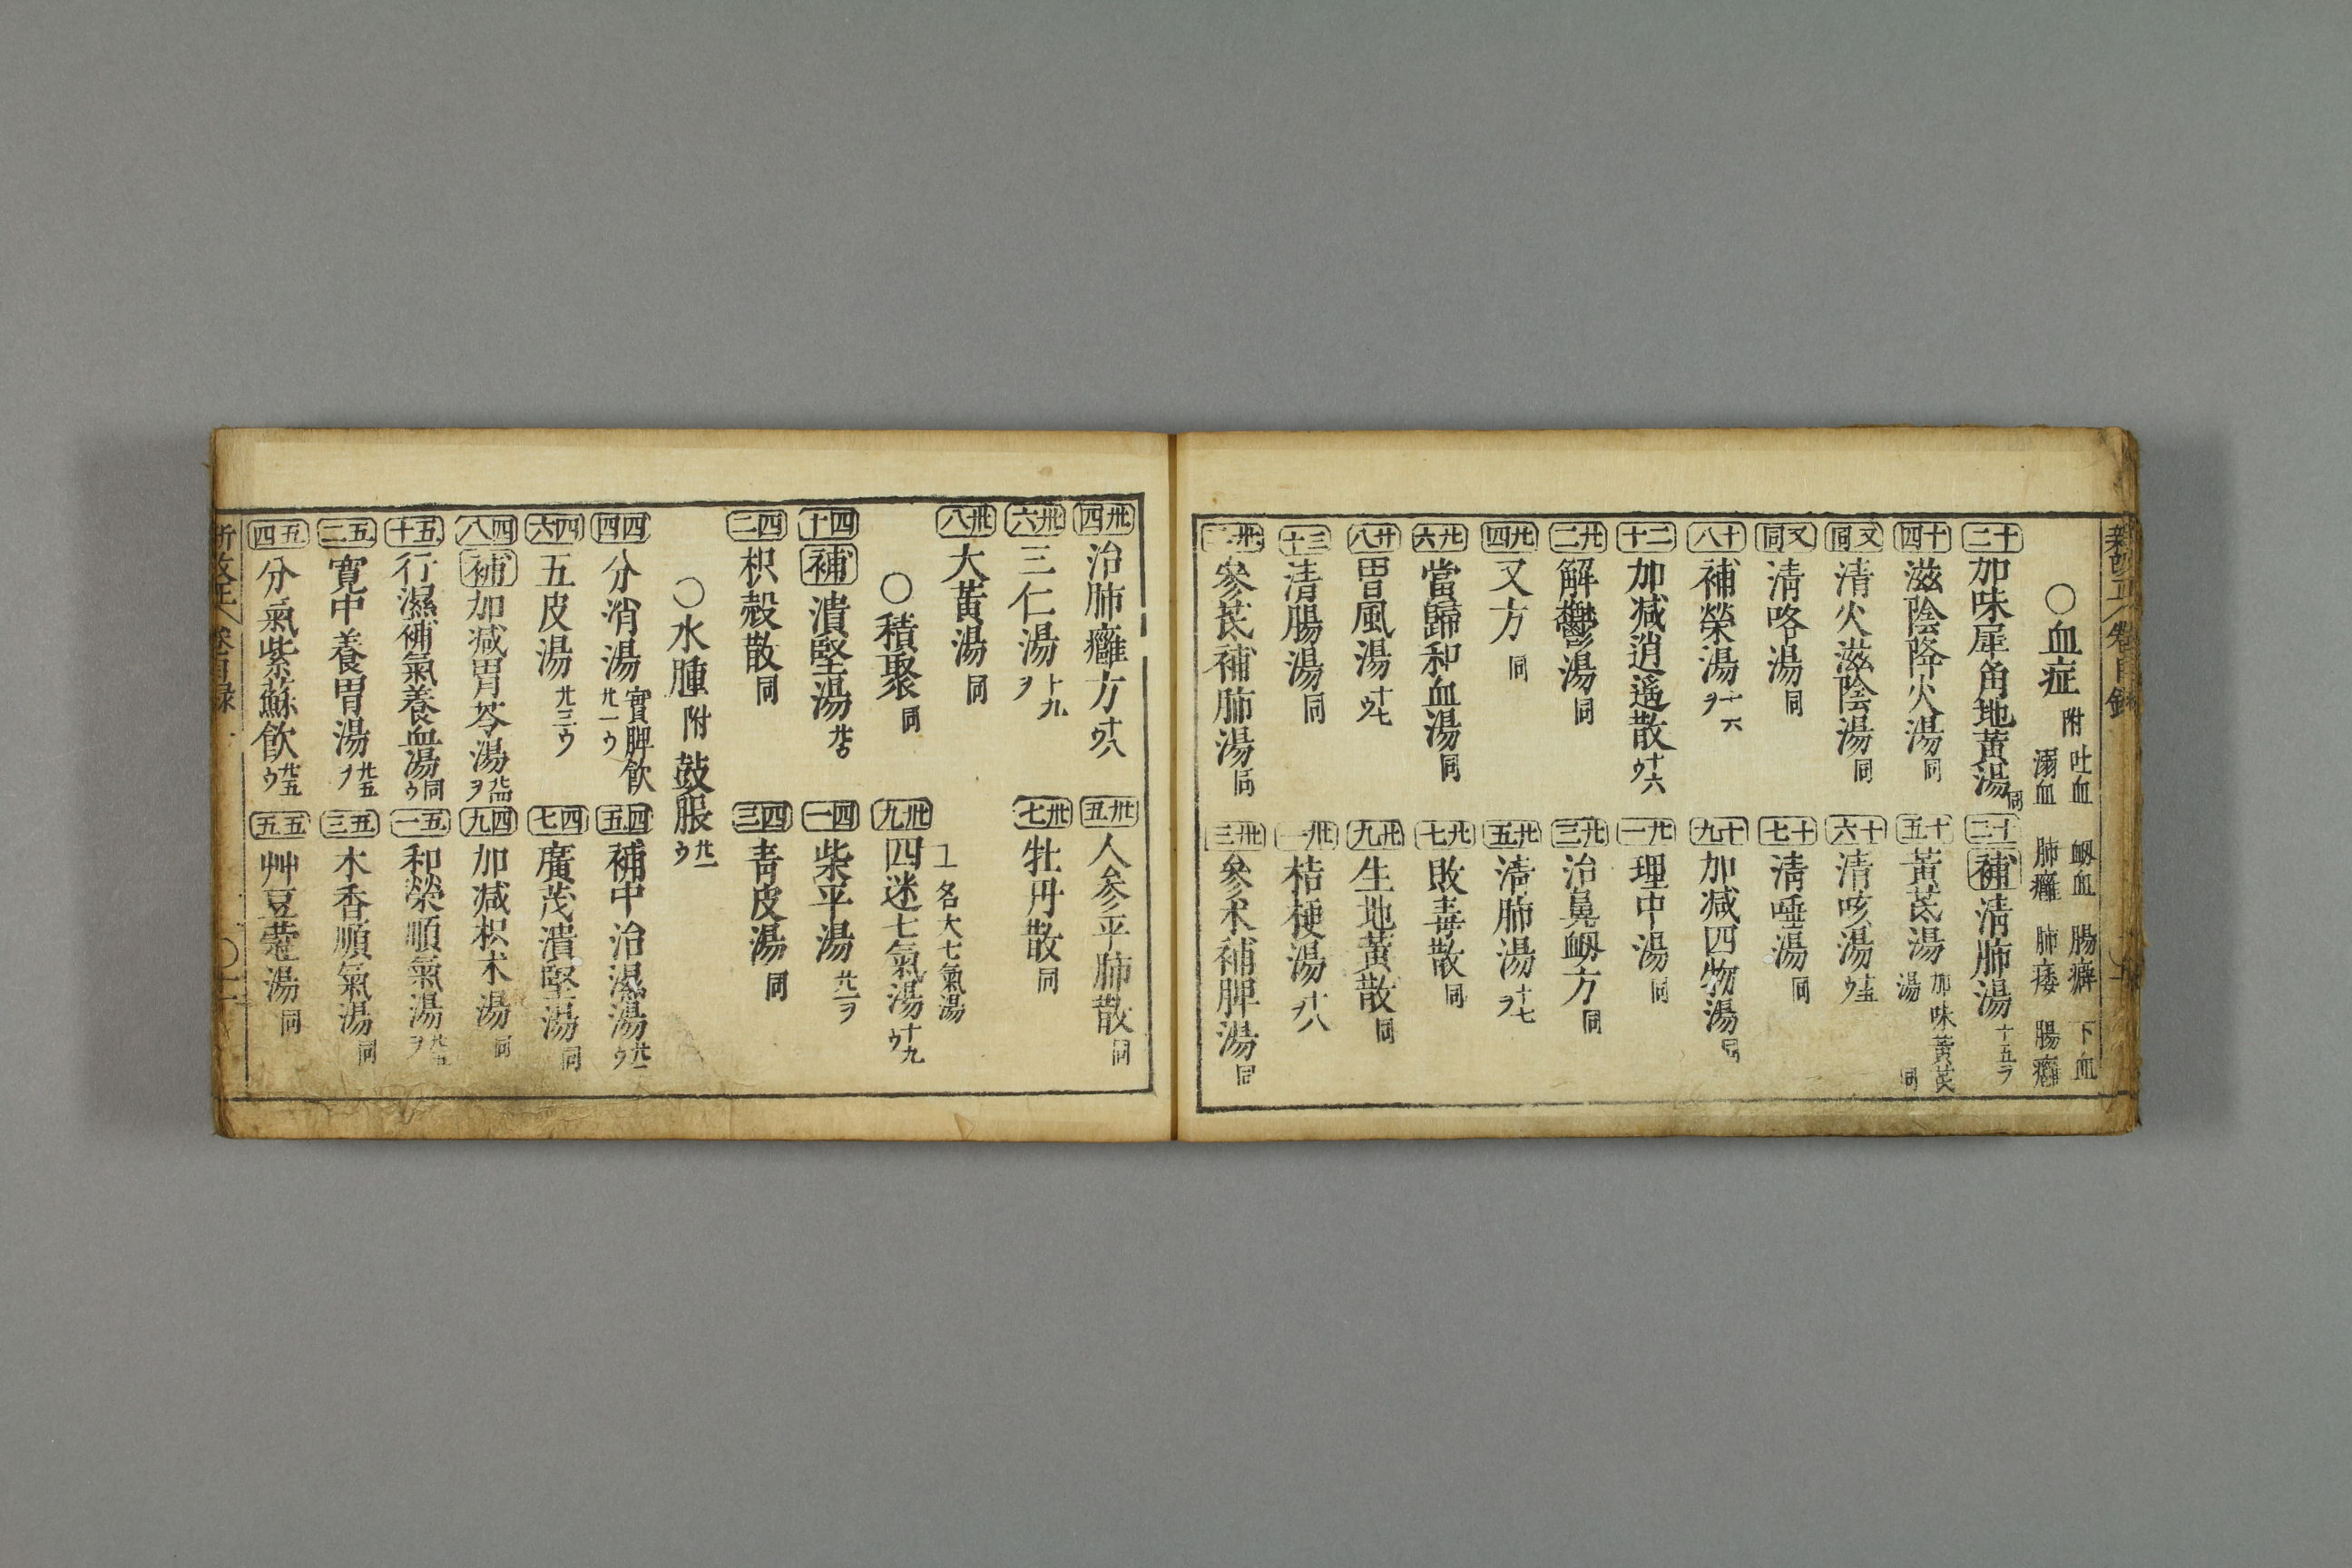 ○血症 附 吐血 衂血 腸癖 下血 溺血 肺癰 肺痿 腸癰
十二 加味犀角地黃湯 同
十三 補 清肺湯 十五ヲ
十四 滋陰降火湯 同
十五 黃芪湯 加味黃芪湯 同
又同 清火滋陰湯 同
十六 清咳湯 十五ウ
又同 清咯湯 同
十七 清唾湯 同
十八 補榮湯 十六ヲ
十九 加減四物湯 同
二十 加減逍遙散 十六ウ
廿一 理中湯 同
廿二 解鬱湯 同
廿三 治鼻衂方 同
廿四 又方 同
廿五 清肺湯 十七ヲ
廿六 當歸和血湯 同
廿七 敗毒散 同
廿八 胃風湯 十七ウ
廿九 生地黃散 同
三十 清腸湯 同
卅一 桔梗湯 十八
卅二 參芪補肺湯 同
卅三 參朮補脾湯 同
卅四 治肺癰方 十八ウ
卅五 人參平肺散 同
卅六 三仁湯 十九ヲ
卅七 牡丹散 同
卅八 大黃湯 同
○積聚 同
卅九 四迷七氣湯 十九ウ
一名大七氣湯
四十 補 潰堅湯
四一 柴平湯 廿一ヲ
四二 枳殼散 同
四三 青皮湯 同
○水腫 附 鼓脹 廿一ウ
四四 分消湯 實脾飲 廿一ウ
四五 補中治濕湯
四六 五皮湯 廿三ウ
四七 廣茂潰堅湯 同
四八 補 加減胃苓湯 廿四ヲ
四九 加減枳朮湯 同
五十 行濕補氣養血湯 同ウ
五一 和榮順氣湯
五二 寬中養胃湯 廿五ヲ
五三 木香順氣湯 同
五四 分氣紫蘇飲 廿五ウ
五五 艸豆蔻湯 同